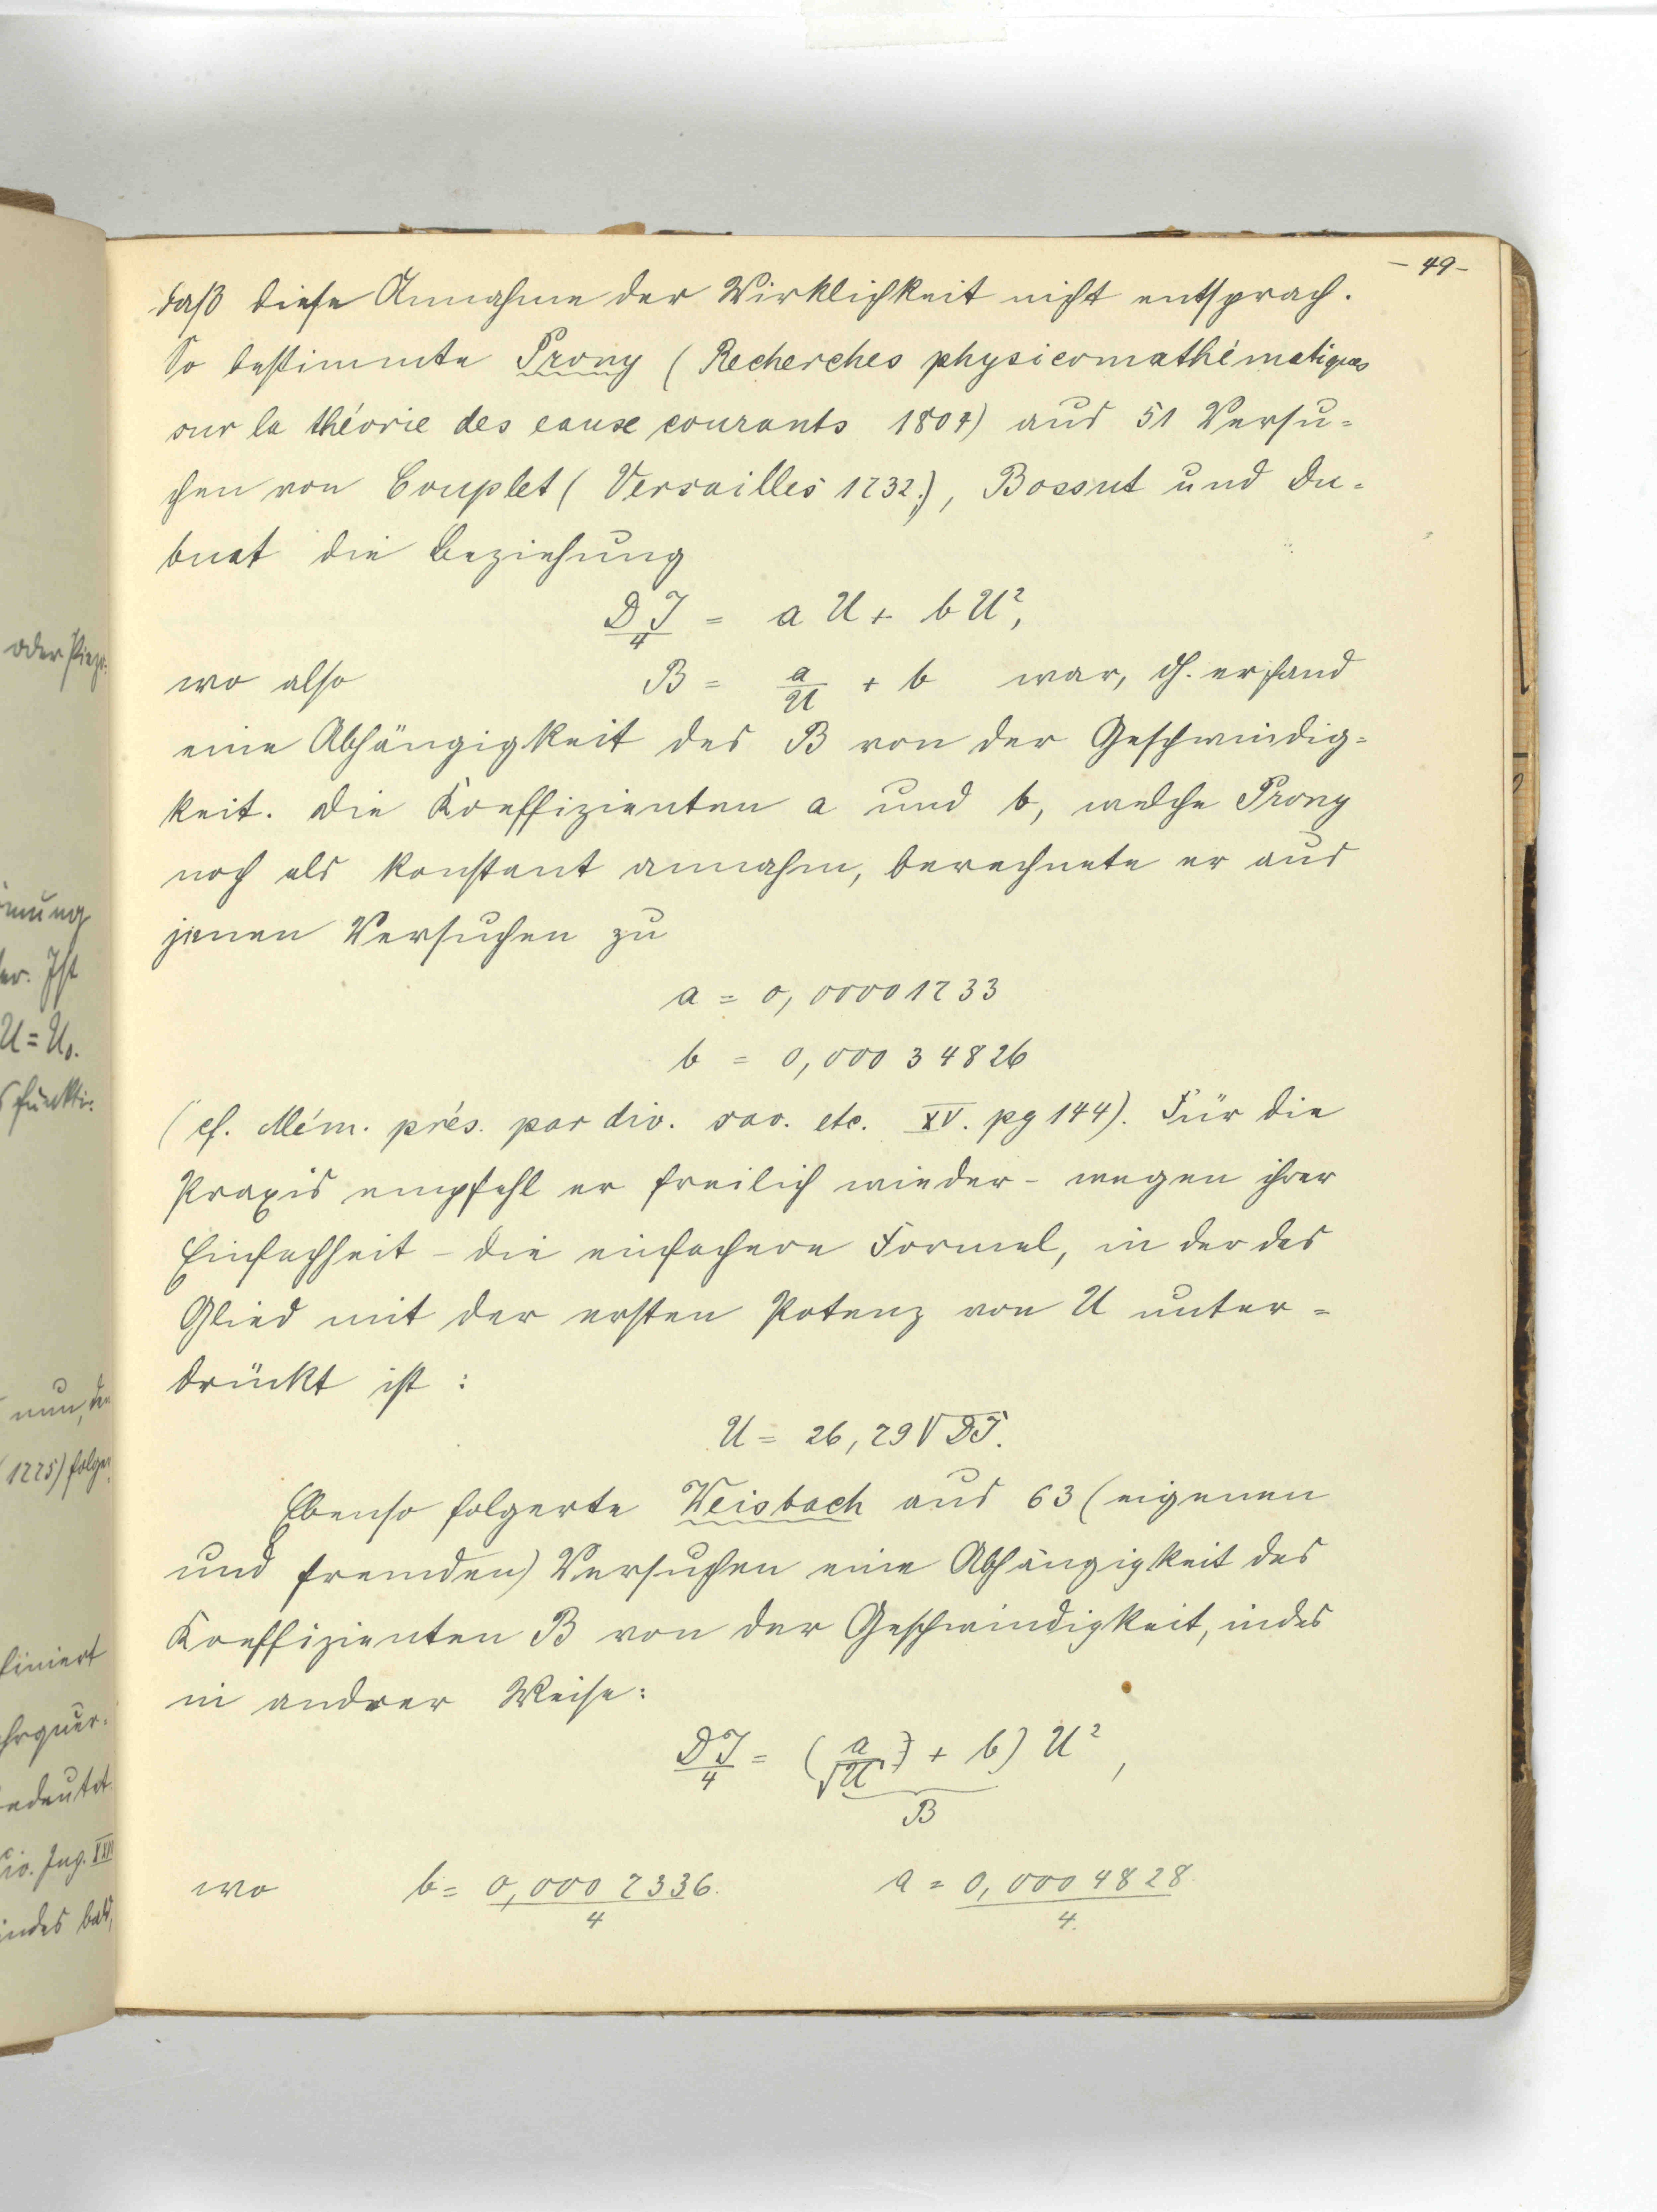 - 49 -
daß diese Annahme der Wirklichkeit nicht entsprach.
So bestimmte Prony (Recherches physicomathématiques
sur la théorie des eaux courants 1804) aus 51 Versu=
chen von Couplet (Versailles 1732.), Bossut und Du=
buat die Beziehung
DJ/4 = a U + b U²,
wo also B = a/U + b war, dh. er fand
eine Abhängigkeit des B von der Geschwindig=
keit. Die Koeffizienten a und b, welche Prony
noch als konstant annahm, berechnete er aus
jenen Versuchen zu
a = 0,00001733
b = 0,00034826
(cf. Mém. prés. par div. sav. etc. XV. pg 144). Für die
Praxis empfahl er freilich wieder - wegen ihrer
Einfachheit - die einfachere Formel, in der das
Glied mit der ersten Potenz von U unter=
drückt ist:
U = 26,79 √DJ.
Ebenso folgerte Weisbach aus 63 (eigenen
und fremden) Versuchen eine Abhängigkeit des
Koeffizienten B von der Geschwindigkeit, indes
in andrer Weise:
DJ/4 = (a/√U + b) U²,
B
wo b = 0,0007336/4 a = 0,0004828/4
oder Piezo=
U = U₀.
nun, de
1775) folge
finiert
ohrquer=
edeutet
indes bald,